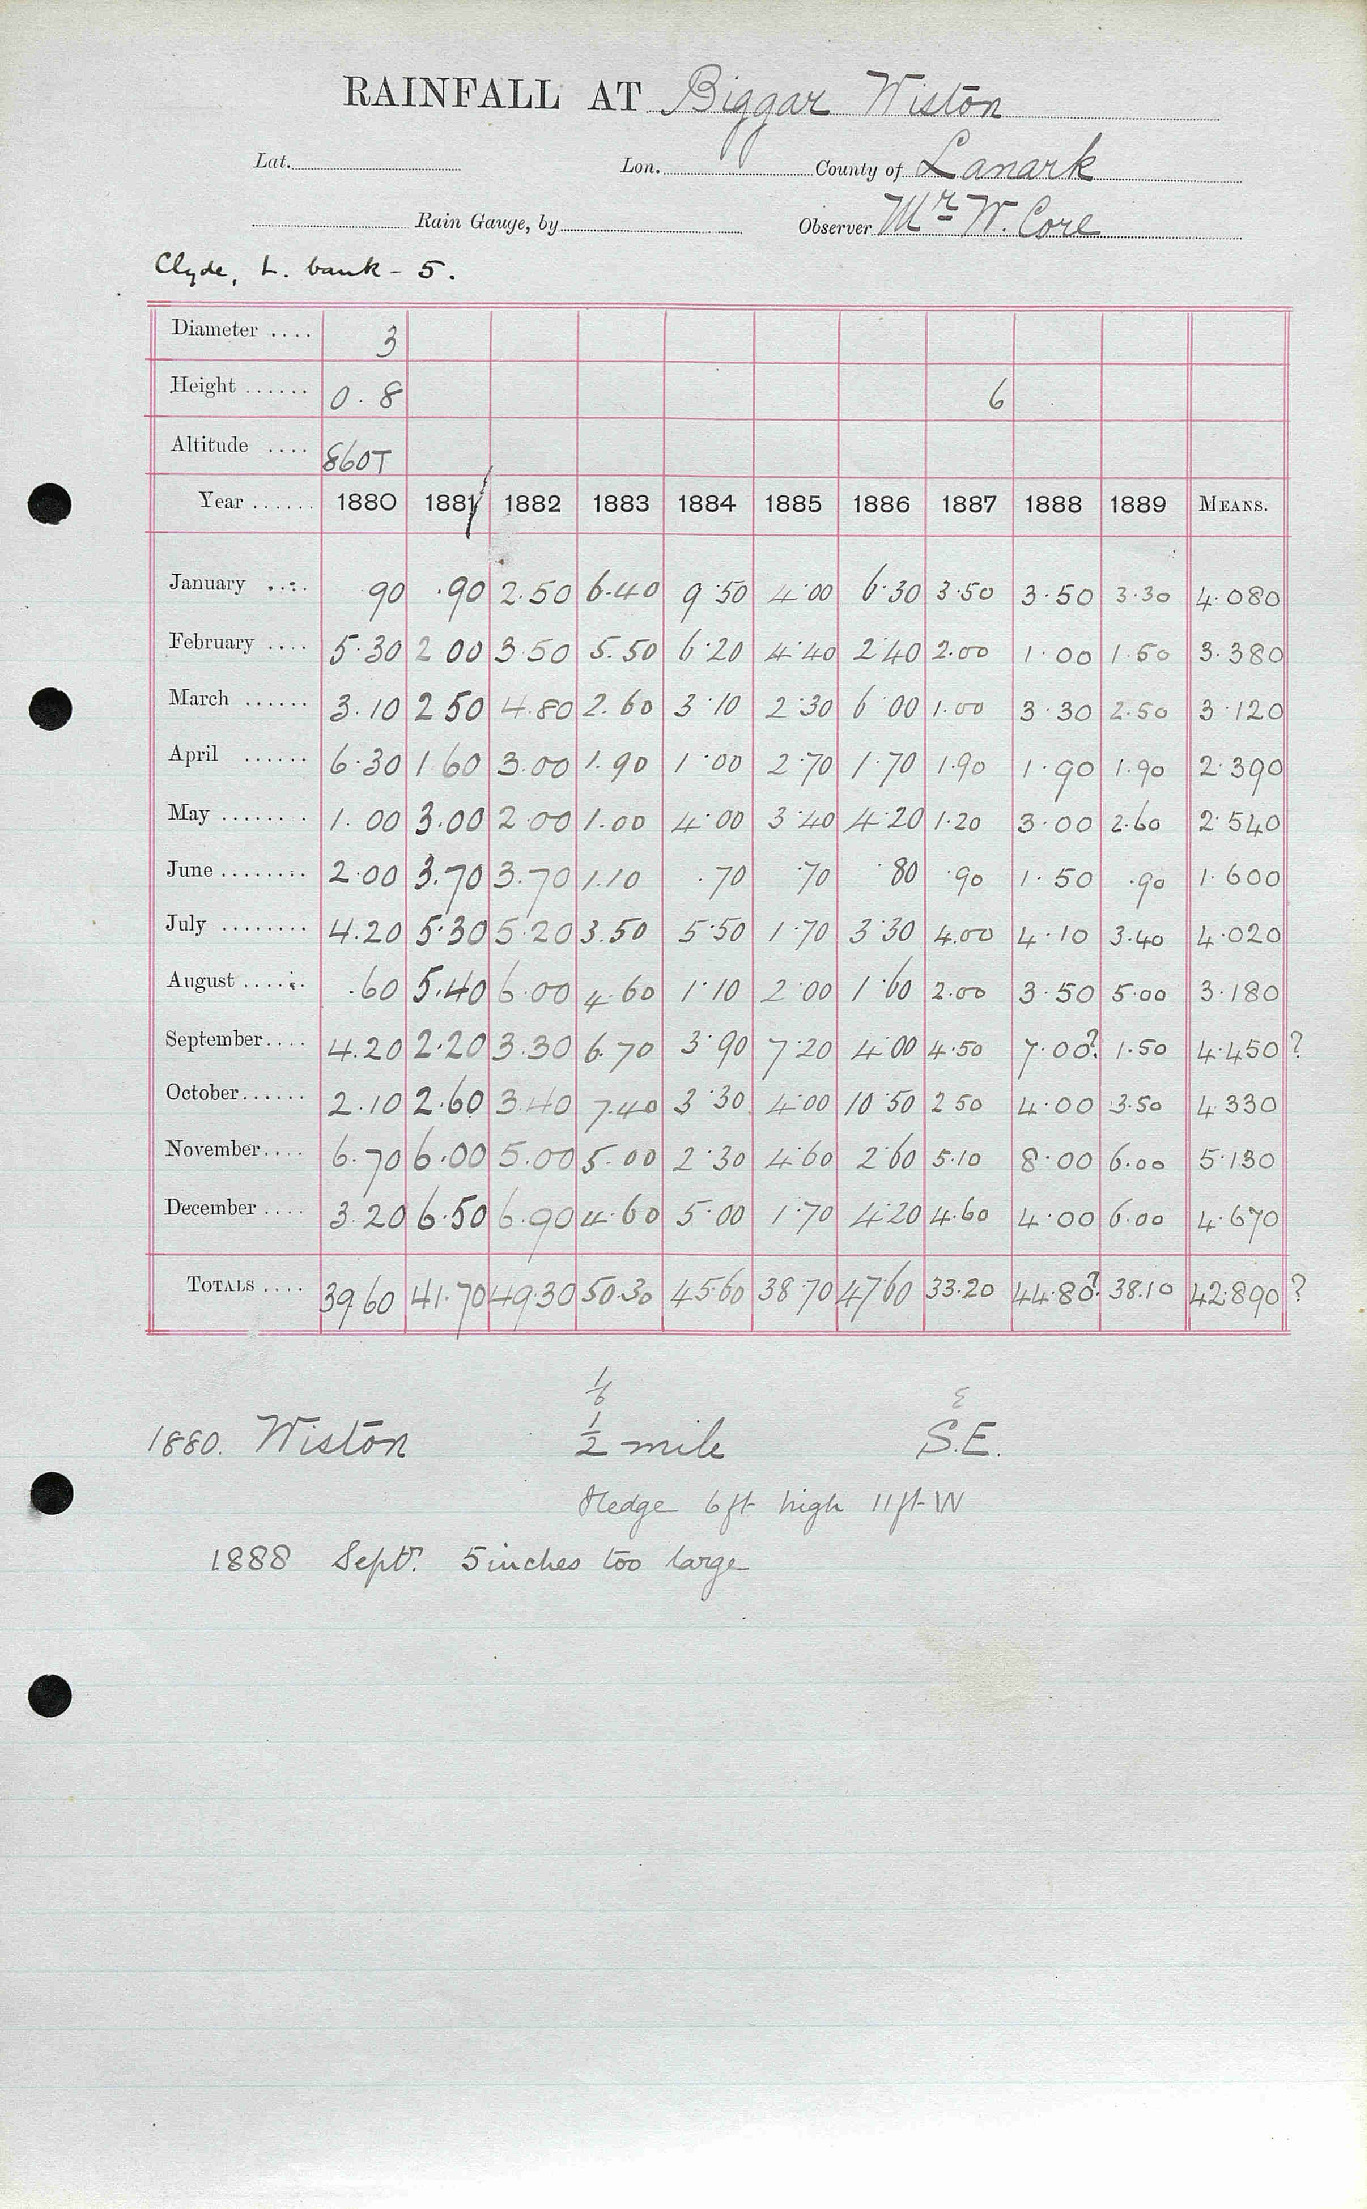 RAINFALL AT Biggar Wiston
Lat. Lon. County of Lanark
Rain Gauge, by Observer Mr. W. Core
Clyde, L. bank - 5.
Diameter .... 3
Height ...... 0.8 6
Altitude .... 860T
Year ...... 1880 1881 1882 1883 1884 1885 1886 1887 1888 1889 MEANS.
January .... 90 .90 2.50 6.40 9.50 4.00 6.30 3.50 3.50 3.30 4.080
February .... 5.30 2.00 3.50 5.50 6.20 4.40 2.40 2.00 1.00 1.50 3.380
March ...... 3.10 2 50 4.80 2.60 3.10 2.30 6.00 1.00 3.30 2.50 3.120
April ...... 6.30 1 60 3.00 1.90 1.00 2.70 1.70 1.90 1.90 1.90 2.390
May ........ 1.00 3.00 2.00 1.00 4.00 3.40 4.20 1.20 3.00 2.60 2.540
June ........ 2.00 3.70 3.70 1.10 .70 .70 .80 .90 1.50 .90 1.600
July ........ 4.20 5.30 5.20 3.50 5.50 1.70 3.30 4.00 4.10 3.40 4.020
August ...... .60 5.40 6.00 4.60 1.10 2.00 1.60 2.00 3.50 5.00 3.180
September.... 4.20 2.20 3.30 6.70 3.90 7.20 4.00 4.50 7.00? 1.50 4.450?
October...... 2.10 2.60 3.40 7.40 3.30 4.00 10.50 2 50 4.00 3.50 4.330
November.... 6.70 6.00 5.00 5.00 2.30 4.60 2.60 5.10 8.00 6.00 5.130
December .... 3.20 6.50 6.90 4.60 5.00 1.70 4.20 4.60 4.00 6.00 4.670
TOTALS .... 39.60 41.70 49.30 50.30 45.60 38.70 47.60 33.20 44.80? 38.10 42.890?
1/6 E
1880. Wiston 1/2 mile S.E.
Hedge 6 ft high 11 ft W
1888 Septr. 5 inches too large